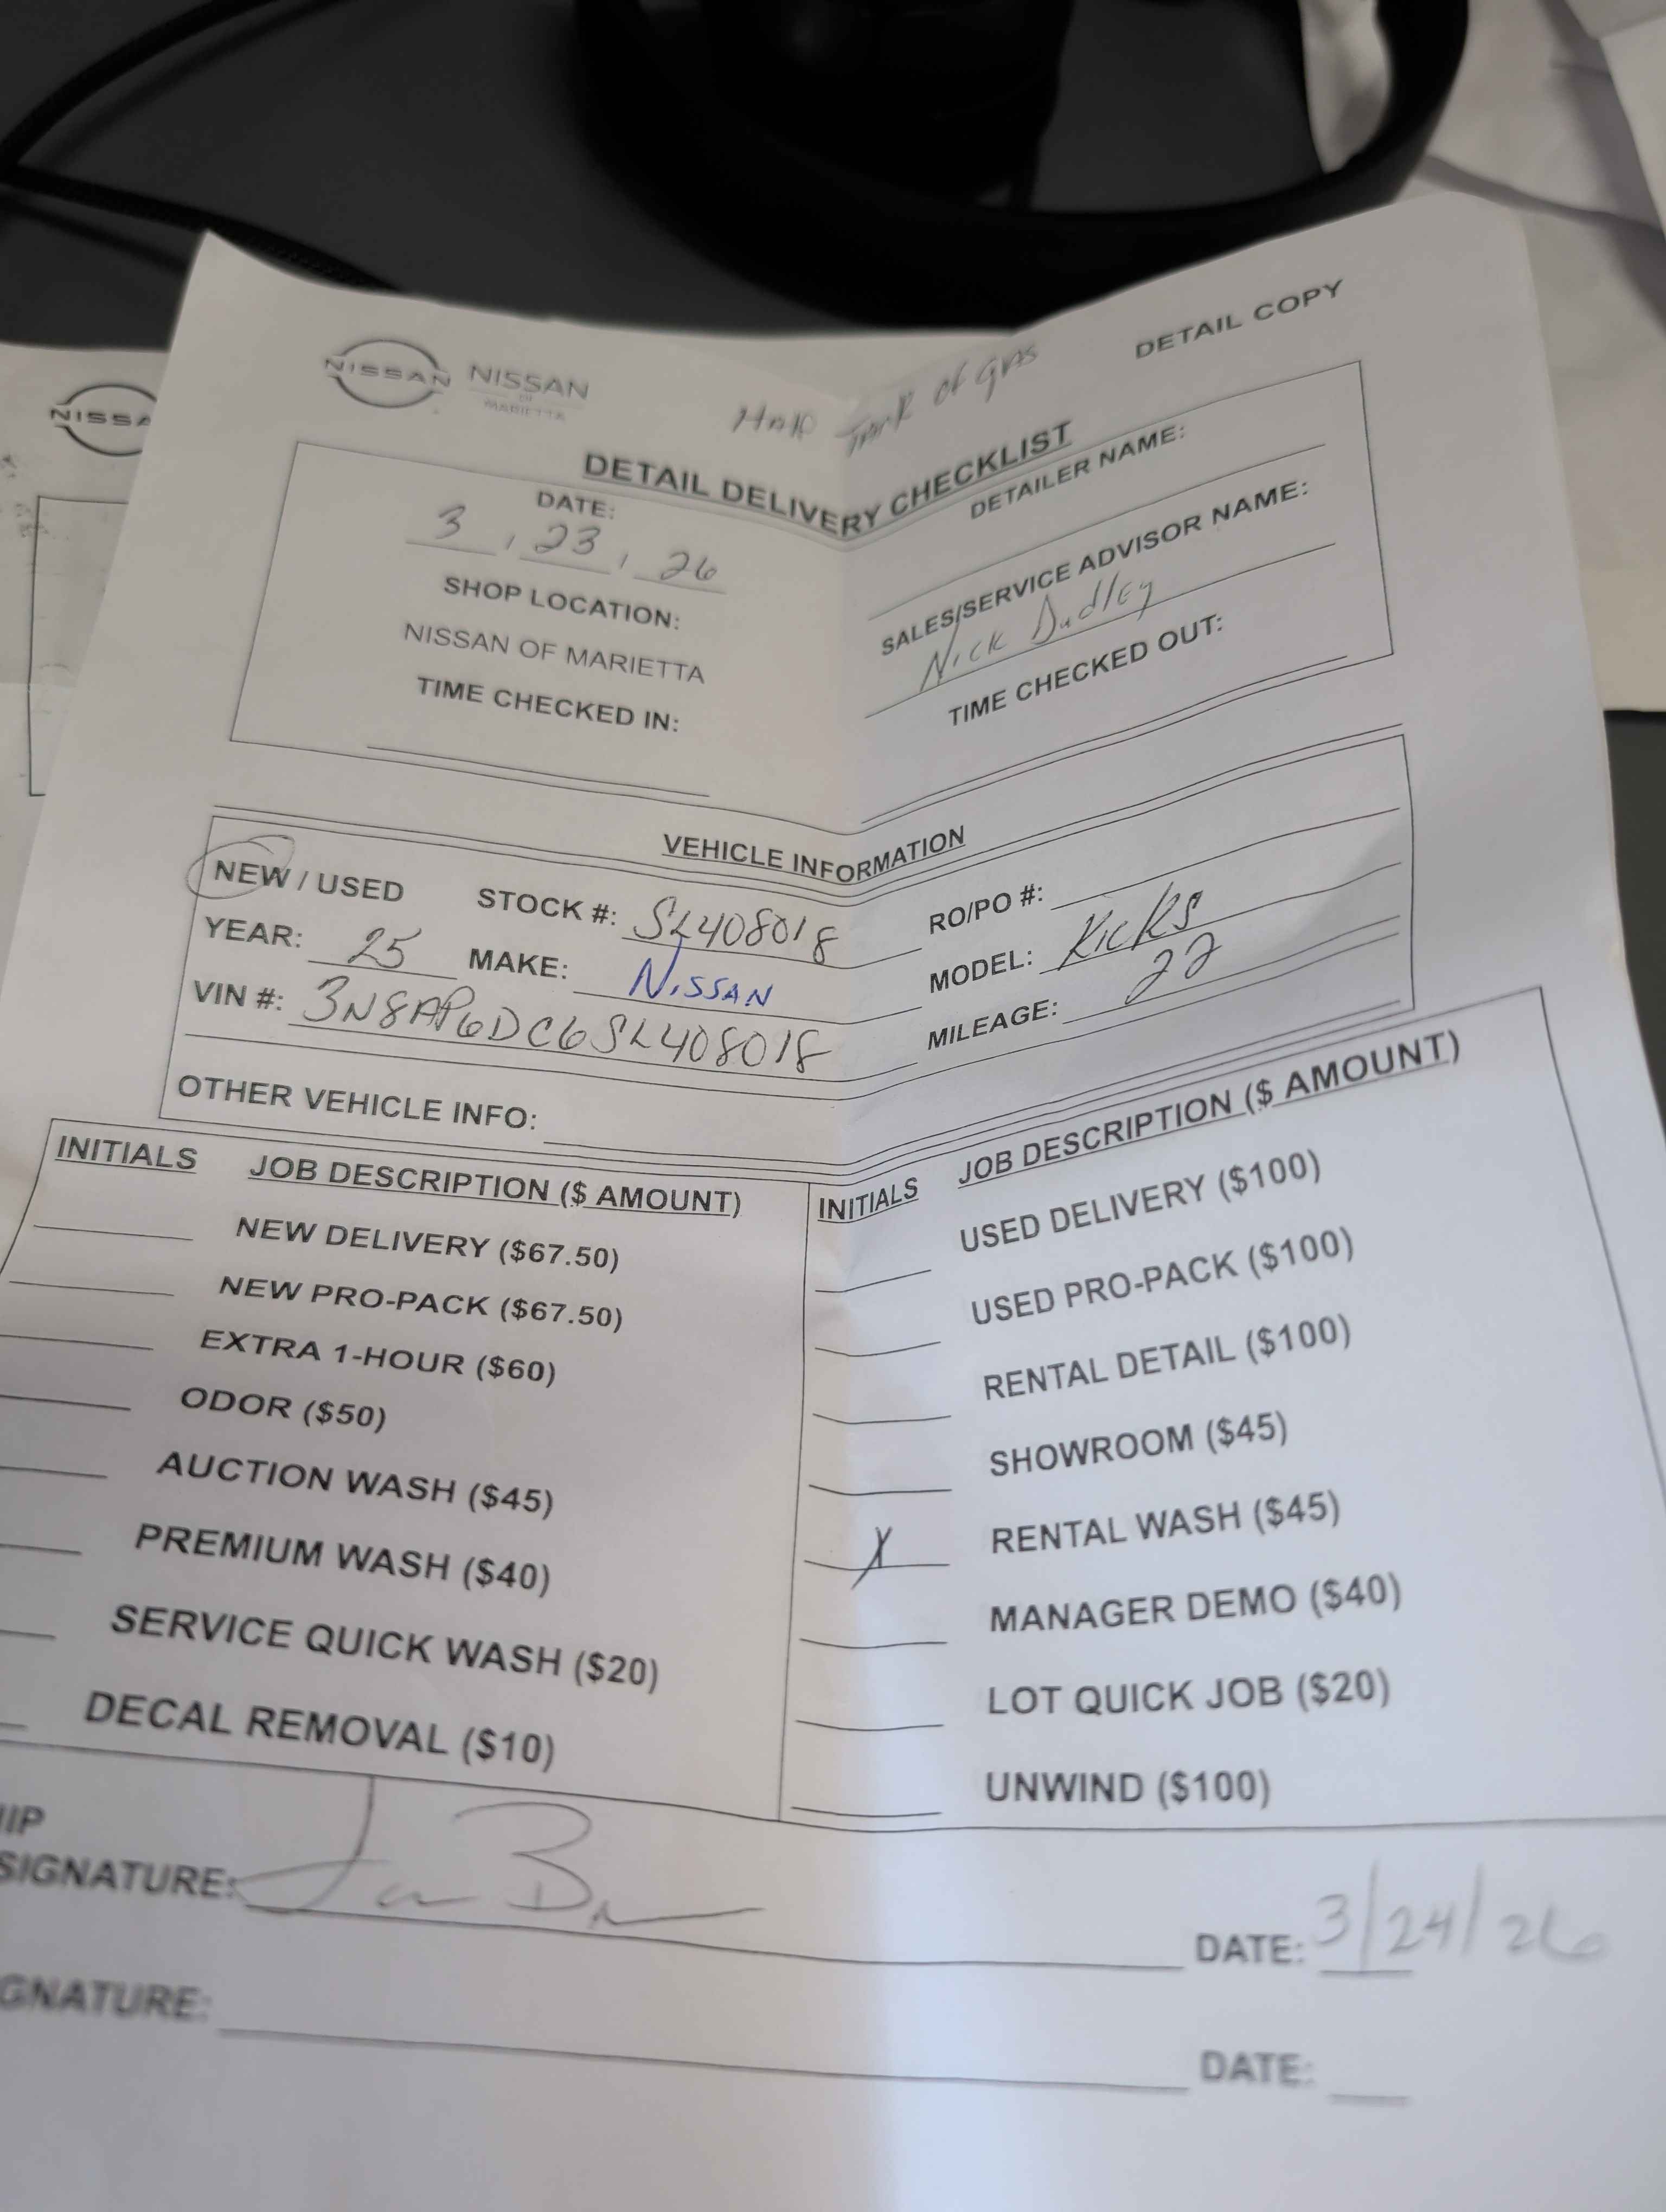 NISSAN
NISSAN
NISSAN
OF
MARIETTA
DETAIL COPY
Half Tank of gas
DETAIL DELIVERY CHECKLIST
DATE:
3 / 23 / 26
SHOP LOCATION:
NISSAN OF MARIETTA
TIME CHECKED IN:
DETAILER NAME:
SALES/SERVICE ADVISOR NAME:
Nick Dudley
TIME CHECKED OUT:
VEHICLE INFORMATION
NEW / USED STOCK #: SL408018 RO/PO #:
YEAR: 25 MAKE: Nissan MODEL: Kicks
VIN #: 3N8AP6DC6SL408018 MILEAGE: 22
OTHER VEHICLE INFO:
INITIALS JOB DESCRIPTION ($ AMOUNT)
NEW DELIVERY ($67.50)
NEW PRO-PACK ($67.50)
EXTRA 1-HOUR ($60)
ODOR ($50)
AUCTION WASH ($45)
PREMIUM WASH ($40)
SERVICE QUICK WASH ($20)
DECAL REMOVAL ($10)
INITIALS JOB DESCRIPTION ($ AMOUNT)
USED DELIVERY ($100)
USED PRO-PACK ($100)
RENTAL DETAIL ($100)
SHOWROOM ($45)
X RENTAL WASH ($45)
MANAGER DEMO ($40)
LOT QUICK JOB ($20)
UNWIND ($100)
HIP
SIGNATURE: DATE: 3/24/26
GNATURE: DATE: